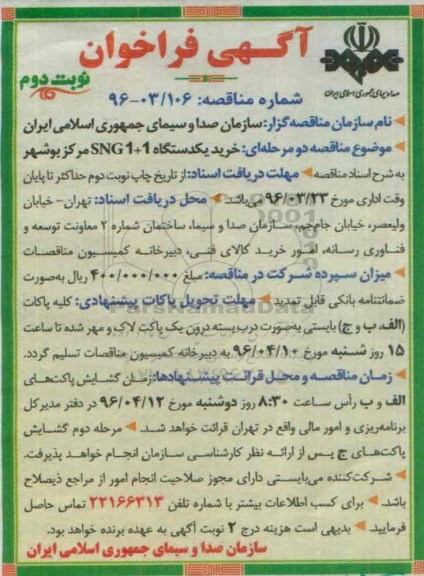 آگهی فراخوان
نوبت دوم
صدا و سیمای جمهوری اسلامی ایران
شماره مناقصه: ۹۶-۰۳/۱۰۶
نام سازمان مناقصه گزار: سازمان صدا و سیمای جمهوری اسلامی ایران
موضوع مناقصه دو مرحله‌ای: خرید یکدستگاه SNG 1+1 مرکز بوشهر
به شرح اسناد مناقصه مهلت دریافت اسناد: از تاریخ چاپ نوبت دوم حداکثر تا پایان
وقت اداری مورخ ۹۶/۰۳/۲۳ می‌باشد محل دریافت اسناد: تهران- خیابان
ولیعصر، خیابان جام‌جم، سازمان صدا و سیما، ساختمان شماره ۲ معاونت توسعه و
فناوری رسانه، امور خرید کالای فنی، دبیرخانه کمیسیون مناقصات
میزان سپرده شرکت در مناقصه: مبلغ ۴۰۰/۰۰۰/۰۰۰ ریال به‌صورت
ضمانتنامه بانکی قابل تمدید مهلت تحویل پاکات پیشنهادی: کلیه پاکات
(الف، ب و ج) بایستی به‌صورت درب بسته درون یک پاکت لاک و مهر شده تا ساعت
۱۵ روز شنبه مورخ ۹۶/۰۴/۱۰ به دبیرخانه کمیسیون مناقصات تسلیم گردد.
زمان مناقصه و محل قرائت پیشنهادها: زمان گشایش پاکت‌های
الف و ب رأس ساعت ۸:۳۰ روز دوشنبه مورخ ۹۶/۰۴/۱۲ در دفتر مدیرکل
برنامه‌ریزی و امور مالی واقع در تهران قرائت خواهد شد. مرحله دوم گشایش
پاکت‌های ج پس از ارائه نظر کارشناسی سازمان انجام خواهد پذیرفت.
شرکت‌کننده می‌بایستی دارای مجوز صلاحیت انجام امور از مراجع ذیصلاح
باشد. برای کسب اطلاعات بیشتر با شماره تلفن ۲۲۱۶۶۳۱۳ تماس حاصل
فرمایید. بدیهی است هزینه درج ۲ نوبت آگهی به عهده برنده خواهد بود.
سازمان صدا و سیمای جمهوری اسلامی ایران